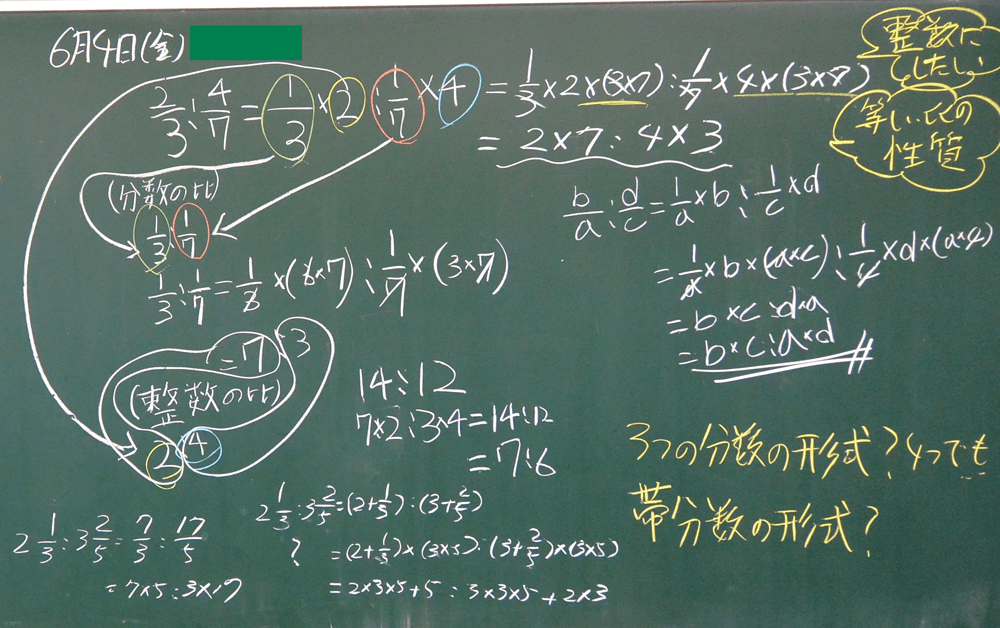 6月4日(金)
2/3 : 4/7 = 1/3 × 2 : 1/7 × 4 = 1/3 × 2 × (3×7) : 1/7 × 4 × (3×7)
= 2×7 : 4×3
整数に
したい
等しい比の
性質
(分数の比)
1/3 : 1/7
1/3 : 1/7 = 1/3 × (3×7) : 1/7 × (3×7)
= 7 : 3
(整数の比)
2 : 4
b/a : d/c = 1/a × b : 1/c × d
= 1/a × b × (a×c) : 1/c × d × (a×c)
= b×c : d×a
= b×c : a×d
14 : 12
7×2 : 3×4 = 14 : 12
= 7 : 6
3つの分数の形式? 4つでも
帯分数の形式?
2 1/3 : 3 2/5 = 7/3 : 17/5
= 7×5 : 3×17
2 1/3 : 3 2/5 = (2+1/3) : (3+2/5)
? = (2+1/3)×(3×5) : (3+2/5)×(3×5)
= 2×3×5+5 : 3×3×5+2×3